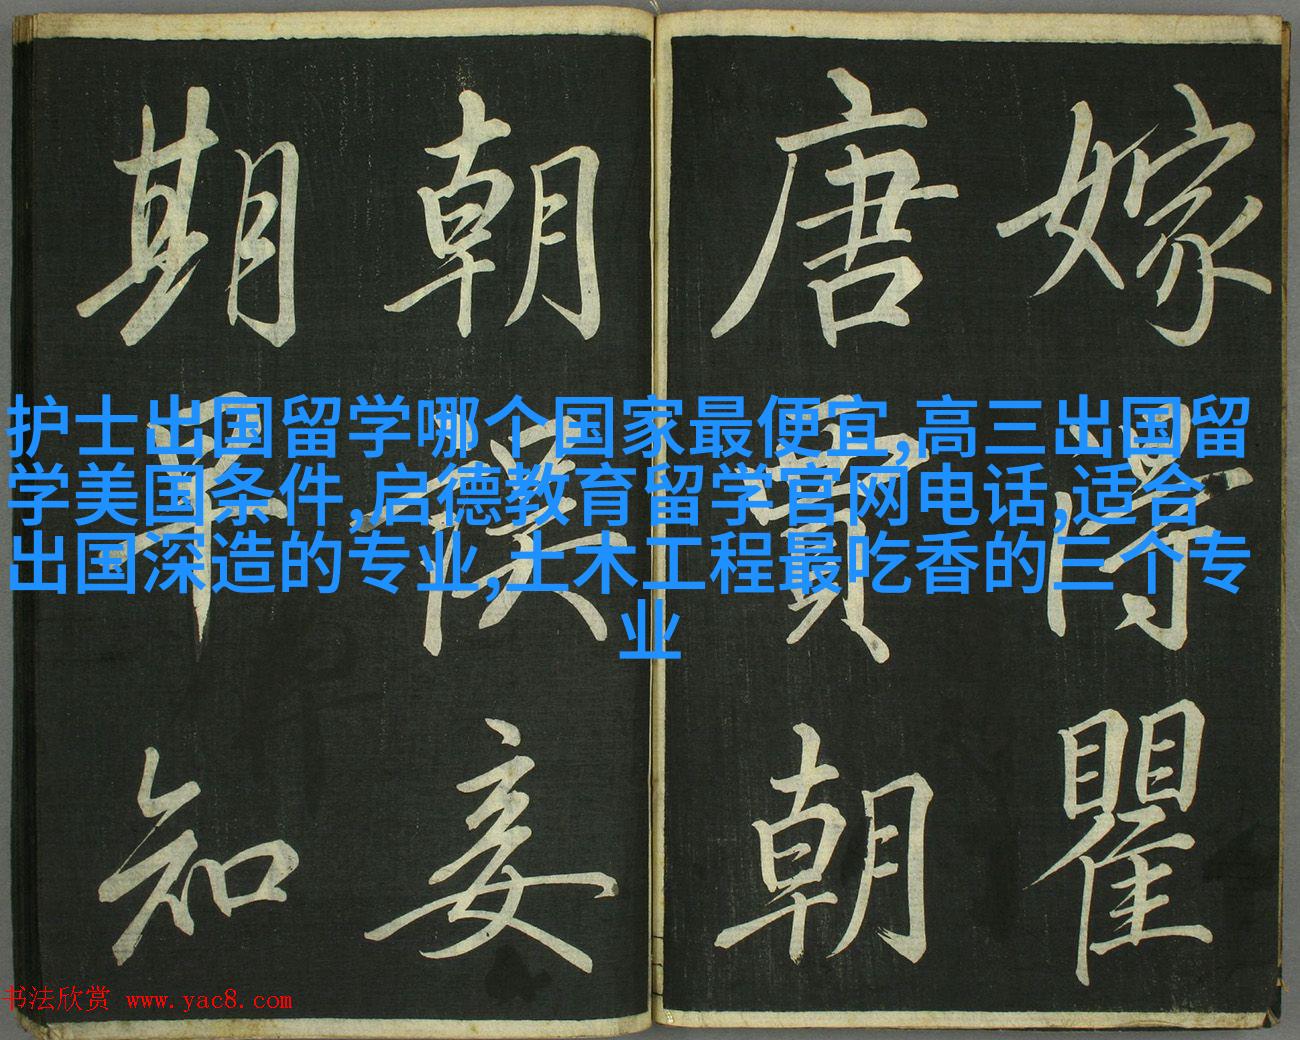 嫁得瞿
唐賈朝
朝誤妾
期早知
护士出国留学哪个国家最便宜,高三出国留
学美国条件,启德教育留学官网电话,适合
出国深造的专业,土木工程最吃香的三个专
业
书法欣赏 www.yac8.com